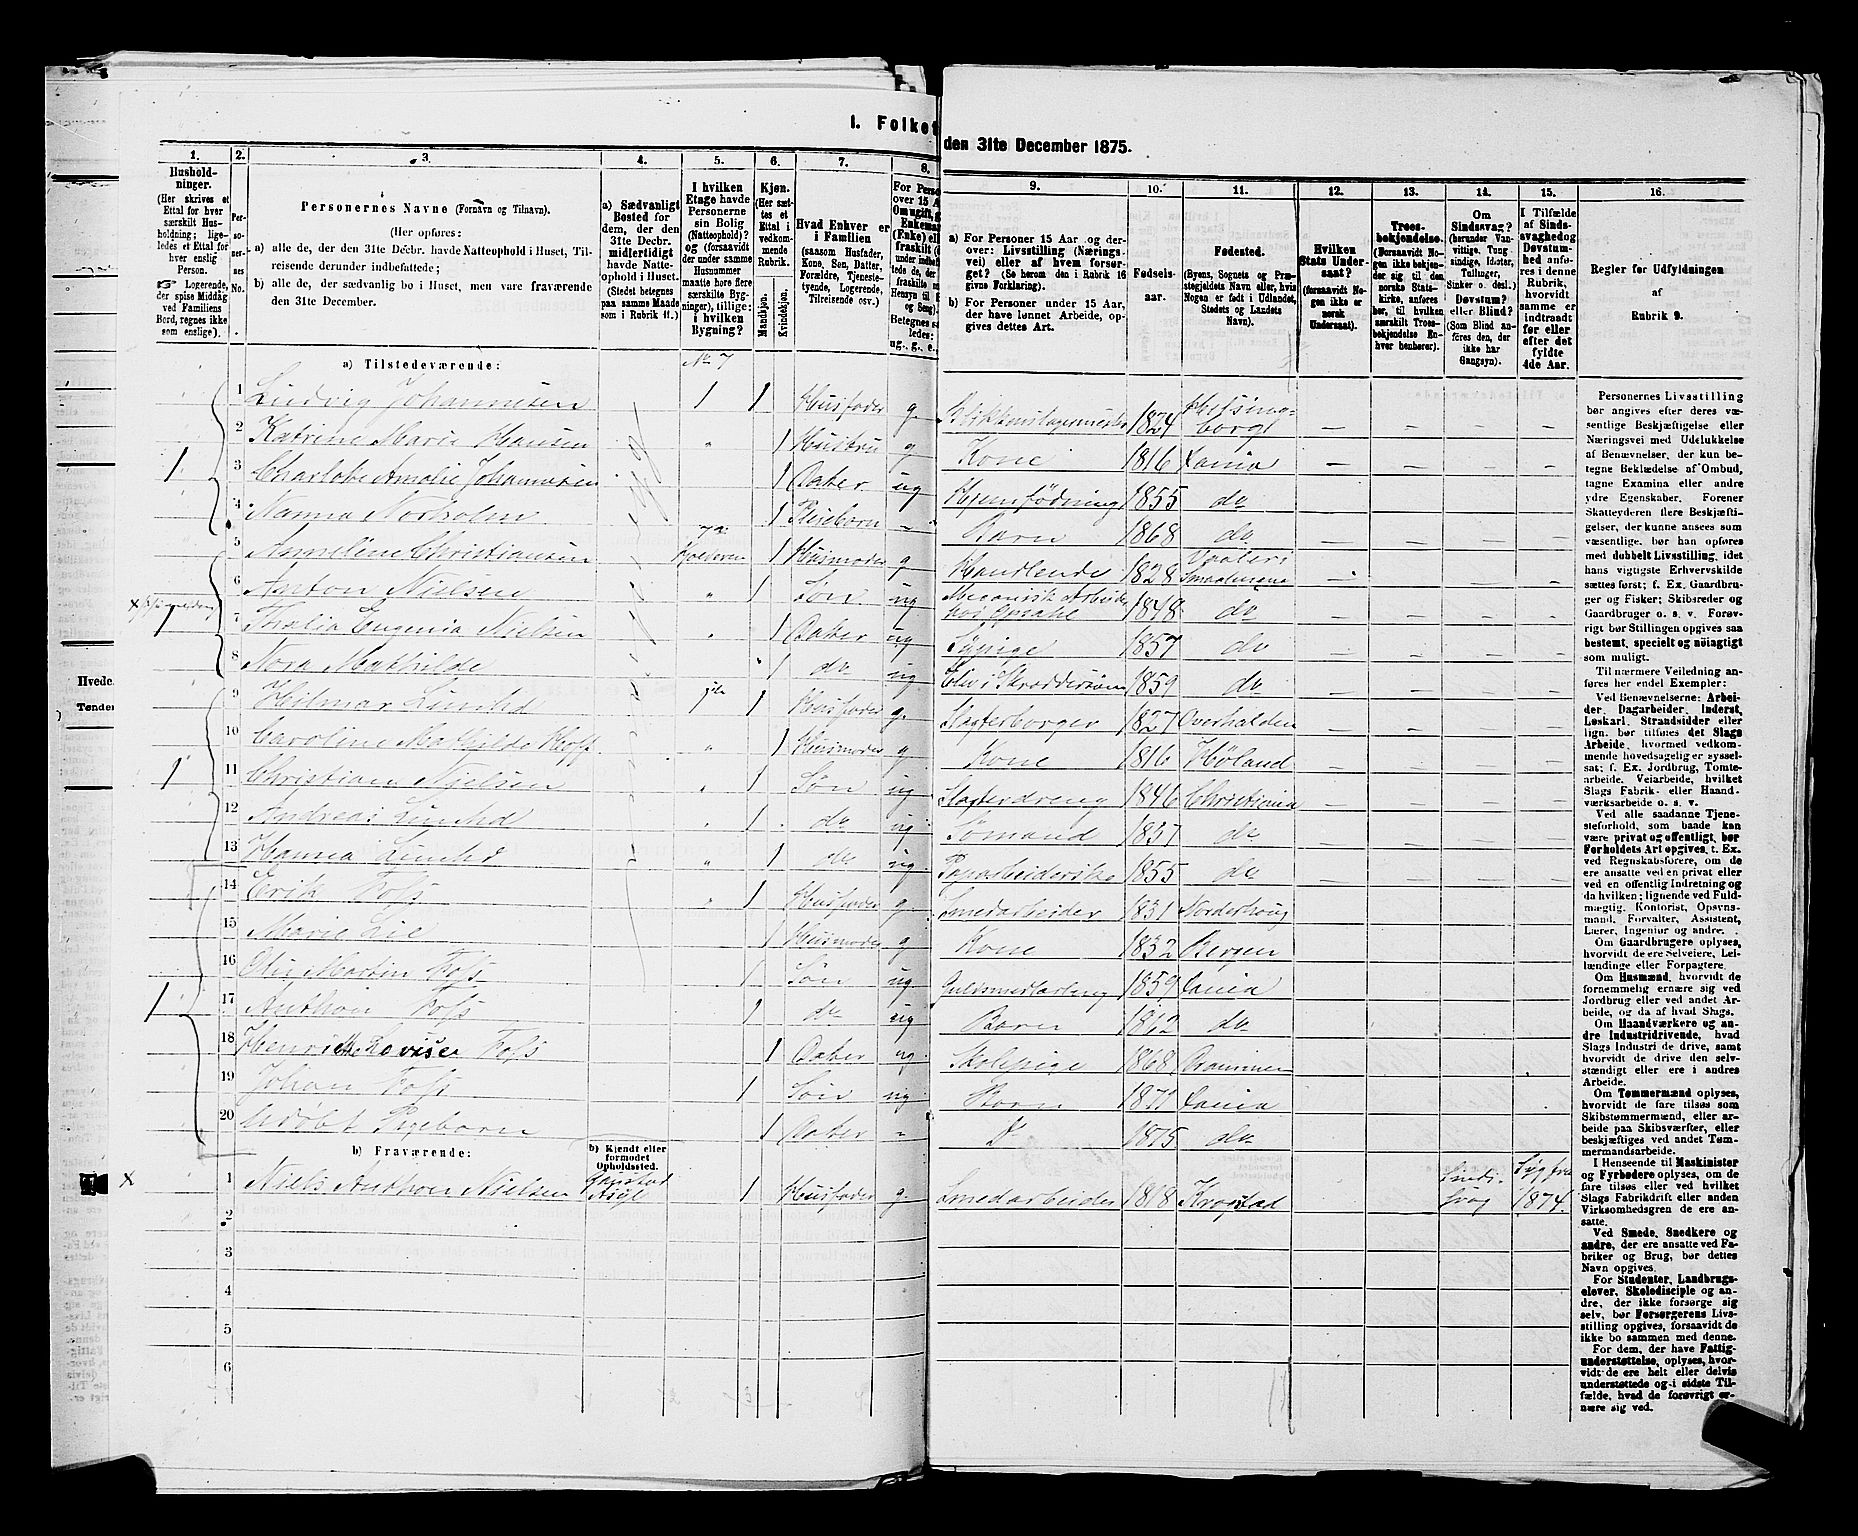 I. Folket
den 31te December 1875.
1. 2. 3. 4. 5. 6. 7. 8. 9. 10. 11. 12. 13. 14. 15. 16.
Hushold-
ninger.
(Her skrives et
Ettal for hver
særskilt Hus-
holdning; lige-
ledes et Ettal for
hver enslig
Person.
☞ Logerende,
der spise Middag
ved Familiens
Bord, regnes ikke
som enslige).
Per-
so-
ner-
nes
No.
Personernes Navne (Fornavn og Tilnavn).
(Her opføres:
a) alle de, der den 31te Decbr. havde Natteophold i Huset, Til-
reisende derunder indbefattede;
b) alle de, der sædvanlig bo i Huset, men vare fraværende
den 31te December.
a) Sædvanligt
Bosted for
dem, der den
31te Decbr.
midlertidigt
havde Natte-
ophold i Huset.
(Stedet betegnes
paa samme Maade
som i Rubrik 11.)
I hvilken
Etage havde
Personerne
sin Bolig
(Natteophold)?
og (forsaavidt
der under samme
Husnummer
maatte høre flere
særskilte Byg-
ninger), tillige:
i hvilken
Bygning?
Kjøn.
(Her sæt-
tes et
Ettal i
vedkom-
mende
Rubrik.
Mandkjøn.
Kvindekjøn.
Hvad Enhver er
i Familien
(saasom Husfader,
Kone, Søn, Datter,
Forældre, Tjeneste-
tyende, Logerende,
Tilreisende osv.)
For Person
over 15 A
Om ugift, g
Enkeman
(Enke) ell
fraskilt (
under indbe
tede de, de
fraskilt
Hensyn til B
og Seng)
Betegnes sa
ledes:
ug., g., e.,
a) For Personer 15 Aar og der-
over: Livsstilling (Nærings-
vei) eller af hvem forsør-
get? (Se herom den i Rubrik 16
givne Forklaring).
b) For Personer under 15 Aar,
der have lønnet Arbeide, op-
gives dettes Art.
Fødsels-
aar.
Fødested.
(Byens, Sognets og Præ-
stegjeldets Navn eller, hvis
Nogen er født i Udlandet,
Stedets og Landets
Navn).
Hvilken
Stats Under-
saat?
(forsaavidt No-
gen ikke er
norsk
Undersaat).
Troes-
bekjendelse.
(Forsaavidt No-
gen ikke bekjen-
der sig til den
norske Stats-
kirke, anføres
her, til hvilken
særskilt Troes-
bekjendelse En-
hver henhører).
Om
Sindssvag?
(herunder Van-
vittige, Tung-
sindige, Idioter,
Tullinger,
Sinker o. desl.)
Døvstum?
eller Blind?
(Som Blind an-
føres den, der
ikke har
Gangsyn).
I Tilfælde
af Sinds-
svaghed og
Døvstum-
hed anfø-
res i denne
Rubrik,
hvorvidt
samme er
indtraadt
før eller
efter det
fyldte
4de Aar.
Regler for Udfyldningen
af
Rubrik 9.
a) Tilstedeværende: No 7
1 Ludvig Johannesen 1 1 Husfader g. Blikkenslagermester 1824
2 Katrine Marie Hansen " 1 Hustru g Kone 1816 Xania — — — —
3 Charlotte Amalie Johannesen 1 Datter ug Hjemfødning 1855 do — — — —
4 Nanna Norholm 1 Pleiebarn – Barn 1868 do
5 Annelene Christiansen Kvisteren 1 Husmoder g Handlende 1828 Smaalenene
6 Anton Nielsen " 1 Søn ug Mecanisk Arbeider 1848 do
7 Thalia Eugenia Nielsen " 1 Datter ug Sypige 1857 do
8 Nora Mathilde 1 do ug Elev i Skræddersøm 1859 do
9 Hilmar Lunhd 1 Husfader g. Slagterborger 1827 Overhalden
10 Caroline Mathilde Hoff " 1 Husmoder g Kone 1816 Høland
11 Christian Nielsen " 1 Søn ug Slagterdreng 1846 Christiania
12 Andreas Lunhd " 1 do ug Sømand 1851 do
13 Hanna Lunhd " 1 do ug 1855 do
14 Erik Foss " 1 Husfader g Smedarbeider 1831 Norderhoug
15 Marie Lie 1 Husmoder g Kone 1832 Bergen
16 Martin Foss 1 Søn ug 1859 Xania
17 Anthon Foss 1 do ug Barn 1862 do
18 Henriette Lovise Foss 1 Datter ug Skolepige 1868
19 Johan Foss 1 Søn ug Barn 1871 Xania
20 Udøbt Pigebarn 1 Datter – Do 1875 do
b) Fraværende:
b) Kjendt eller
formodet
Opholdssted.
1 Niels Anthon Nielsen Gaustad Asyl 1 Husfader g Smedarbeider 1818 Krogstad Sinds-svag 1874.
2
3
4
5
6
Personernes Livsstilling
bør angives efter deres væ-
sentlige Beskjæftigelse eller
Næringsvei med Udelukkelse
af Benævnelser, der kun be-
tegne Beklædelse af Ombud,
tagne Examina eller andre
ydre Egenskaber. Forener
Skatteyderen flere Beskjæfti-
gelser, der kunne ansees som
væsentlige, bør han opføres
med dobbelt Livsstilling, idet
hans vigtigste Erhvervskilde
sættes først; f. Ex. Gaardbru-
ger og Fisker; Skibsreder og
Gaardbruger o. s. v. Forøv-
rigt bør Stillingen opgives saa
bestemt, specielt og nøiagtigt
som muligt.
Til nærmere Veiledning an-
føres her endel Exempler:
Ved Benævnelserne: Arbei-
der, Dagarbeider, Inderst,
Løskarl, Strandsidder eller
lign. bør tilføies det Slags
Arbeide, hvormed vedkom-
mende hovedsagelig er syssel-
sat; f. Ex. Jordbrug, Tomte-
arbeide, Veiarbeide, hvilket
Slags Fabrik- eller Haand-
værksarbeide o. s. v.
Ved alle saadanne Tjene-
steforhold, som baade kan
være privat og offentligt, bør
Forholdets Art opgives, f. Ex.
ved Regnskabsførere, om de
ere ansatte ved en privat eller
ved en offentlig Indretning og
da hvilken; lignende ved Fuld-
mægtig, Kontorist, Opsyns-
mand, Forvalter, Assistent,
Lærer, Ingeniør og andre.
Om Gaardbrugere oplyses,
hvorvidt de ere Selveiere, Lei-
lændinge eller Forpagtere.
Om Husmænd, hvorvidt de
fornemmelig ernære sig ved
Jordbrug eller ved andet Ar-
beide, og da af hvad Slags.
Om Haandværkere og an-
dre Industridrivende, hvad
Slags Industri de drive, samt
hvorvidt de drive den selv-
stændigt eller ere i andres
Arbeide.
Om Tømmermænd oplyses,
hvorvidt de fare tilsøs som
Skibstømmermænd, eller ar-
beide paa Skibsværfter, eller
beskjæftiges ved andet Tøm-
mermandsarbeide.
I Henseende til Maskinister
og Fyrbødere oplyses, om de
fare tilsøs eller ved hvilket
Slags Fabrikdrift eller anden
Virksomhedsgren de ere an-
satte.
Ved Smede, Snedkere og
andre, der ere ansatte ved Fa-
briker og Brug, bør dettes
Navn opgives.
For Studenter, Landbrugs-
elever, Skoledisciple og an-
dre, der ikke forsørge sig
selv, bør Forsørgerens Livs-
stilling opgives, forsaavidt de
ikke bo sammen med denne.
For dem, der have Fattig-
understøttelse, oplyses, hvor-
vidt de ere helt eller delvis
understøttede og i sidste Til-
fælde, hvad de forøvrigt er-
nære sig ved.
Hvede.
Tønder